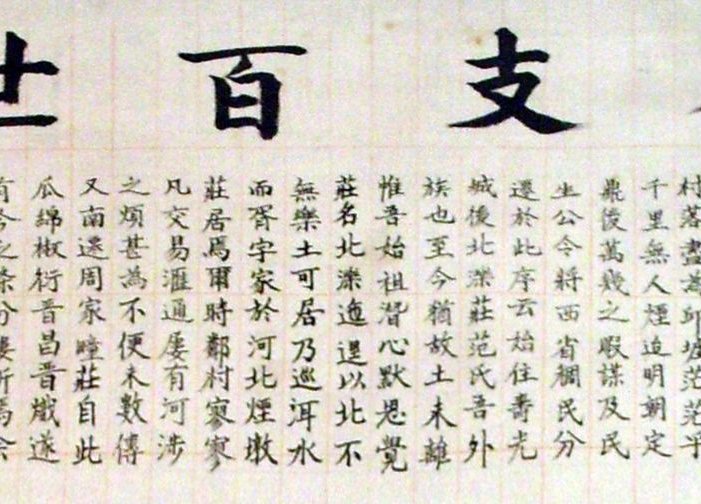 支百世
村落盡為邱墟茫茫乎
千里無人煙迨明朝定
鼎後萬幾之暇謀及民
生公令將西省稠民分
遷於此序云始住壽光
城後北濼莊范氏吾外
族也至今猶故土未離
惟吾始祖潛心默思覺
莊名北濼迤邐以北不
無樂土可居乃巡洱水
而胥宇家於河北煙墩
莊居焉爾時鄰村寥寥
凡交易滙通屢有河涉
之煩甚為不便未數傳
又南遷周家疃莊自此
瓜綿椒衍晉昌晉熾遂